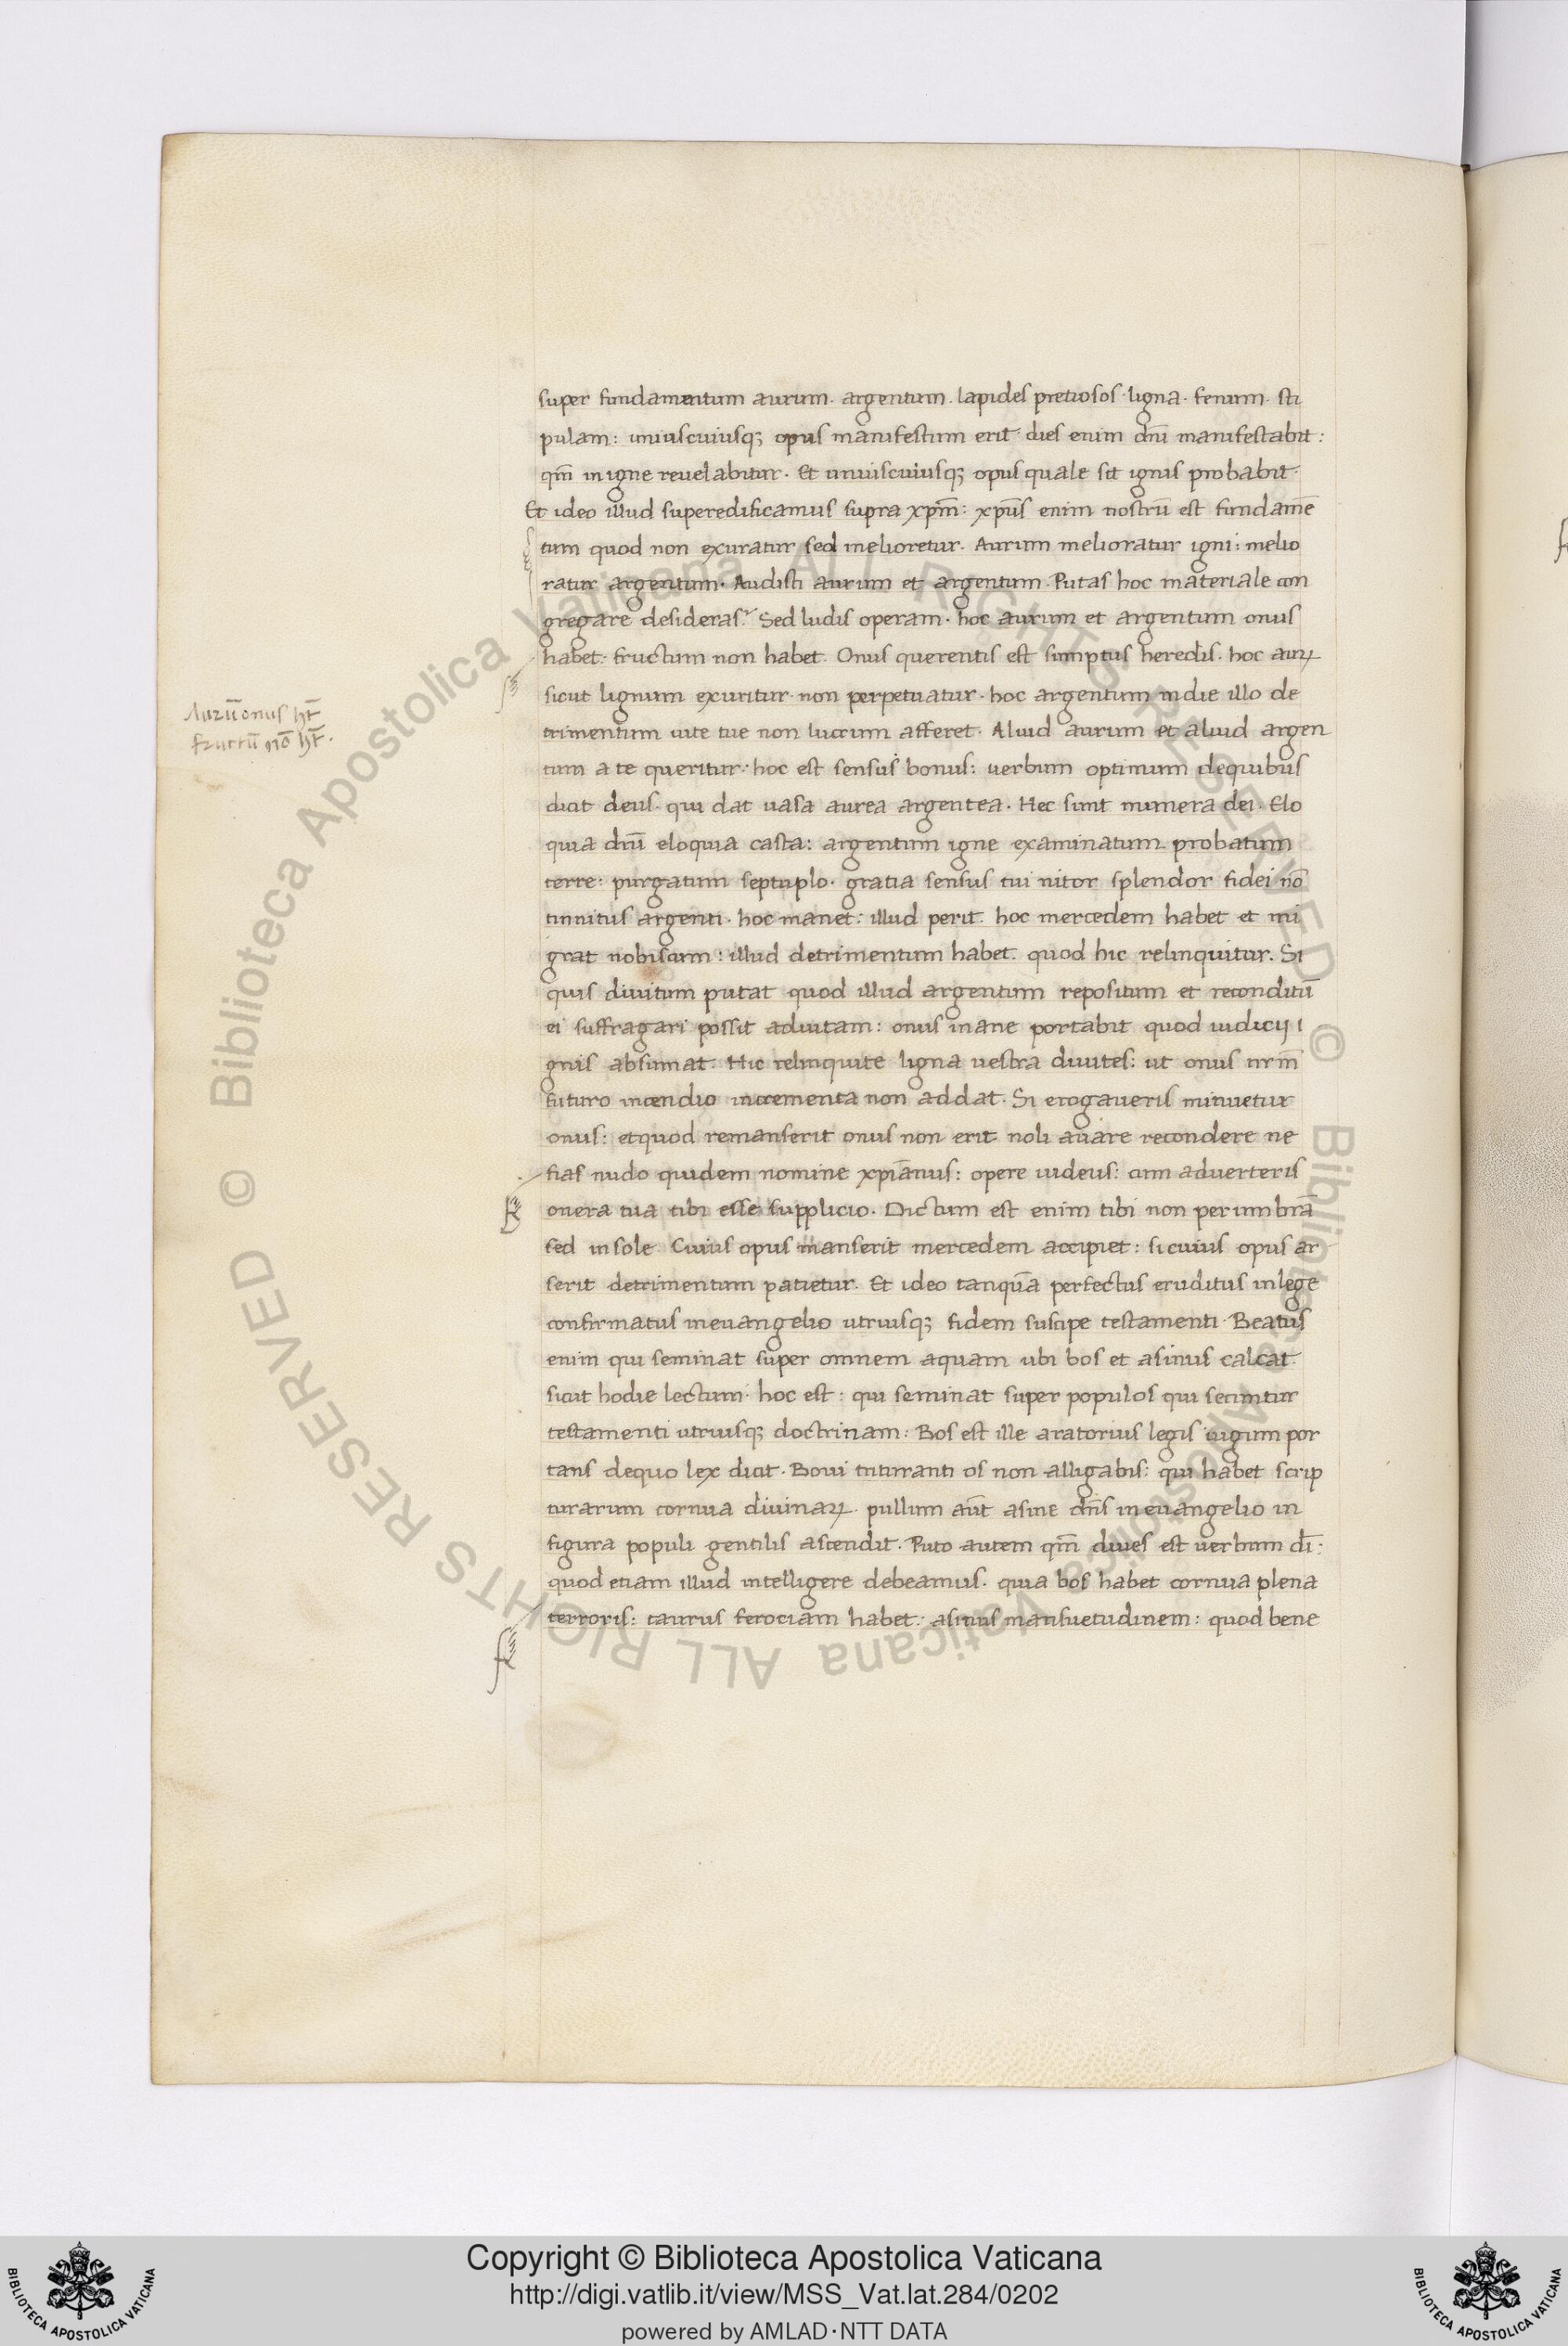 super fundamentum aurum. argentum. lapides pretiosos. ligna. fenum. sti
pulam: uniuscuiusq; opus manifestum erit. dies enim dnī manifestabit:
qm̄ in igne reuelabitur. Et uniuscuiusq; opus quale sit ignis probabit.
Et ideo illud superedificamus supra xpm̄: xpūs enim nostrū est fundamē
tum quod non exuratur sed melioretur. Aurum melioratur igni: melio
ratur argentum. Audisti aurum et argentum. Putas hoc materiale con
gregare desideras? Sed ludis operam. hoc aurum et argentum onus
habet. fructum non habet. Onus querentis est sumptus heredis. hoc auꝝ
sicut lignum exuritur. non perpetuatur. hoc argentum in die illo de
Aurū onus ht̄
fructū nō ht̄.
trimentum uite tue non lucrum afferet. Aliud aurum et aliud argen
tum a te queritur. hoc est sensus bonus: uerbum optimum de quibus
dicit deus. qui dat uasa aurea argentea. Hec sunt munera dei. Elo
quia dnī eloquia casta: argentum igne examinatum probatum
terre: purgatum septuplo. gratia sensus tui nitor splendor fidei nō
tinnitus argenti. hoc manet: illud perit. hoc mercedem habet et mi
grat nobiscum: illud detrimentum habet. quod hic relinquitur. Si
quis diuitum putat quod illud argentum repositum et reconditū
ei suffragari possit ad uitam: onus inane portabit quod iudicij i
gnis absumat. Hic relinquite ligna uestra diuites: ut onus nrm̄
futuro incendio incrementa non addat. Si erogaueris minuetur
onus: et quod remanserit onus non erit noli auare recondere ne
fias nudo quidem nomine xpiānus: opere iudeus: cum aduerteris
onera tua tibi esse supplicio. Dictum est enim tibi non per umbrā
sed in sole. Cuius opus manserit mercedem accipiet: si cuius opus ar
serit detrimentum patietur. Et ideo tanquā perfectus eruditus in lege
confirmatus in euangelio utriusq; fidem suscipe testamenti. Beatus
enim qui seminat super omnem aquam ubi bos et asinus calcat.
sicut hodie lectum. hoc est: qui seminat super populos qui secuntur
testamenti utriusq; doctrinam: Bos est ille aratorius legis iugum por
tans de quo lex dicit. Boui trituranti os non alligabis: qui habet scrip
turarum cornua diuinaꝝ. pullum aūt asine dn̄s in euangelio in
figura populi gentilis ascendit. Puto autem qm̄ diues est uerbum dī:
quod etiam illud intelligere debeamus. quia bos habet cornua plena
terroris: taurus ferociam habet: asinus mansuetudinem: quod bene
© Biblioteca Apostolica Vaticana ALL RIGHTS RESERVED
© Biblioteca Apostolica Vaticana ALL RIGHTS RESERVED
BIBLIOTECA APOSTOLICA VATICANA
Copyright © Biblioteca Apostolica Vaticana
http://digi.vatlib.it/view/MSS_Vat.lat.284/0202
powered by AMLAD·NTT DATA
BIBLIOTECA APOSTOLICA VATICANA